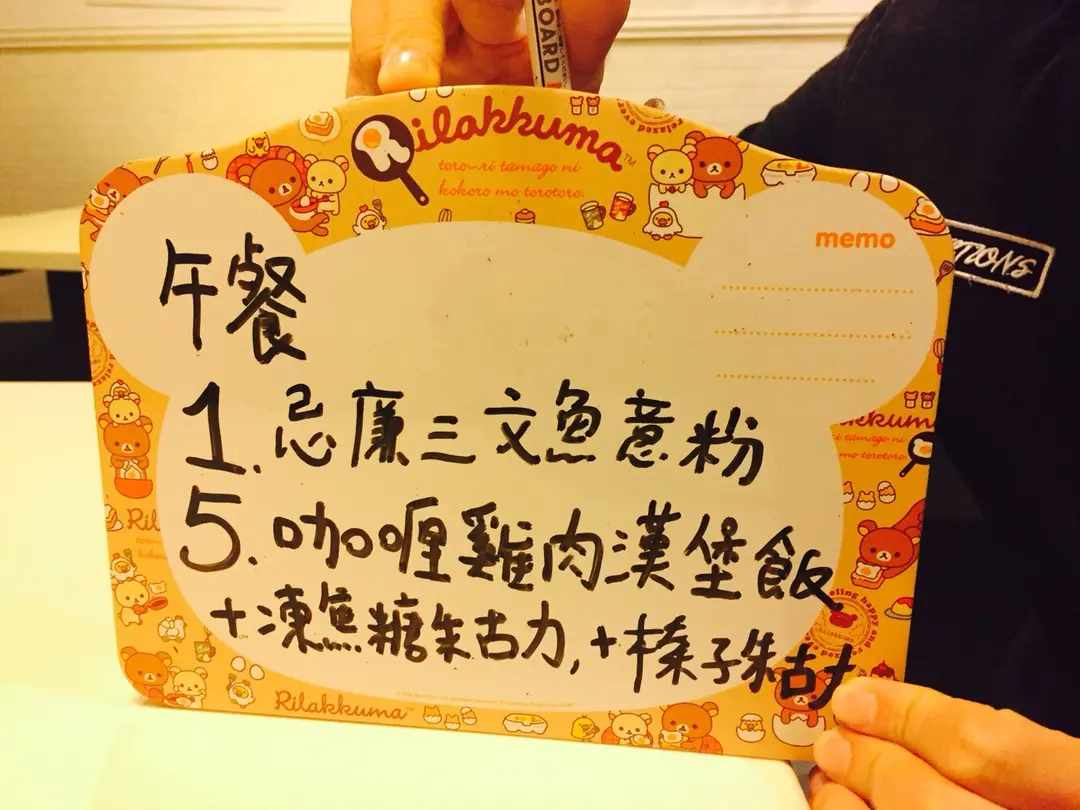 BOARD
Rilakkuma™
toro~ri tamago ni
kokoro mo torotoro.
relaxed over
memo
午餐
1. 忌廉三文魚意粉
5. 咖喱雞肉漢堡飯
+凍焦糖朱古力,+榛子朱古力
Rilakkuma™